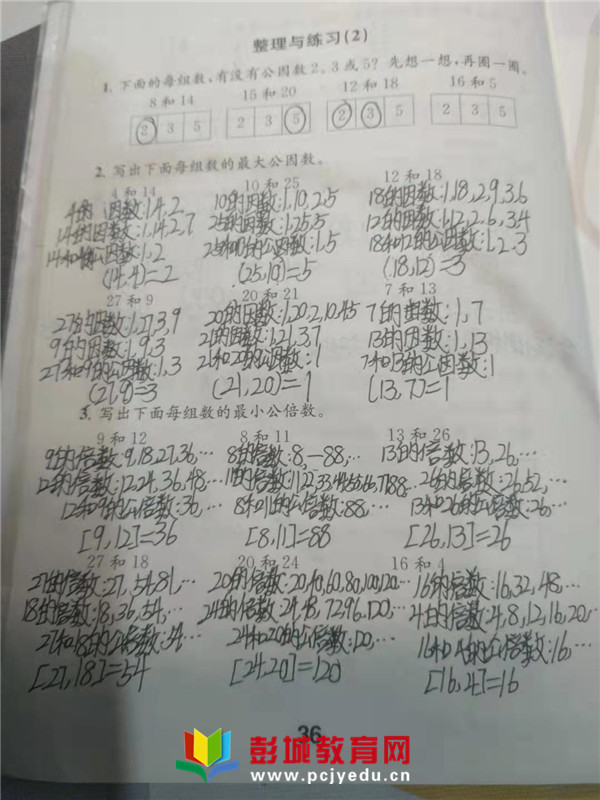 整理与练习(2)
1. 下面的每组数,有没有公因数2、3或5? 先想一想,再圈一圈。
8 和 14 15 和 20 12 和 18 16 和 5
2 3 5 2 3 5 2 3 5 2 3 5
2. 写出下面每组数的最大公因数。
4 和 14 10 和 25 12 和 18
4的因数:1,4,2 10的因数:1,10,2,5 18的因数:1,18,2,9,3,6
14的因数:1,14,2,7 25的因数:1,25,5 12的因数:1,12,2,6,3,4
14和4的公因数:1,2 25和10的公因数:1,5 18和12的公因数:1,2,3
(14,4)=2 (25,10)=5 (18,12)=3
27 和 9 20 和 21 7 和 13
27的因数:1,27,3,9 20的因数:1,20,2,10,4,5 7的因数:1,7
9的因数:1,9,3 21的因数:1,21,3,7 13的因数:1,13
27和9的公因数:1,3 21和20的公因数:1 7和13的公因数:1
(27,9)=3 (21,20)=1 (13,7)=1
3. 写出下面每组数的最小公倍数。
9 和 12 8 和 11 13 和 26
9的倍数:9,18,27,36,… 8的倍数:8,…88,… 13的倍数:13,26,…
12的倍数:12,24,36,48,… 11的倍数:11,22,33,44,55,66,77,88… 26的倍数:26,52,…
12和9的公倍数:36,… 8和11的公倍数:88,… 13和26的公倍数:26,…
[9,12]=36 [8,11]=88 [26,13]=26
27 和 18 20 和 24 16 和 4
27的倍数:27,54,81,… 20的倍数:20,40,60,80,100,120,… 16的倍数:16,32,48,…
18的倍数:18,36,54,… 24的倍数:24,48,72,96,120,… 4的倍数:4,8,12,16,20,…
27和18的公倍数:54,… 24和20的公倍数:120,… 16和4的公倍数:16,…
[27,18]=54 [24,20]=120 [16,4]=16
36
彭城教育网
www.pcjyedu.cn